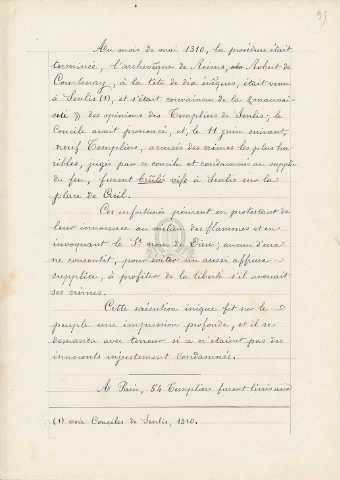 95
Au mois de mai 1310, la procédure était
terminée, l'archevêque de Reims, Robert de
Courtenay, à la tête de dix évêques, était venu
à Senlis (1), et s'était convaincu de la mauvai-
des opinions des Templiers de Senlis ; le
Concile avait prononcé, et, le 11 juin suivant,
neuf Templiers, accusés des crimes les plus hor-
ribles, jugés par ce concile et condamnés au supplice
du feu, furent brûlés vifs à Senlis sur la
place de Creil.
Ces infortunés périrent en protestant de
leur innocence au milieu des flammes et en
invoquant le St nom de Dieu ; aucun d'eux
ne consentit, pour éviter un aussi affreux
supplice, à profiter de la liberté s'il avouait
ses crimes.
Cette exécution inique fit sur le
peuple une impression profonde, et il se
demanda avec terreur si ce n'étaient pas des
innocents injustement condamnés.
A Paris, 54 Templiers furent livrés aux
(1) voir Conciles de Senlis, 1310.